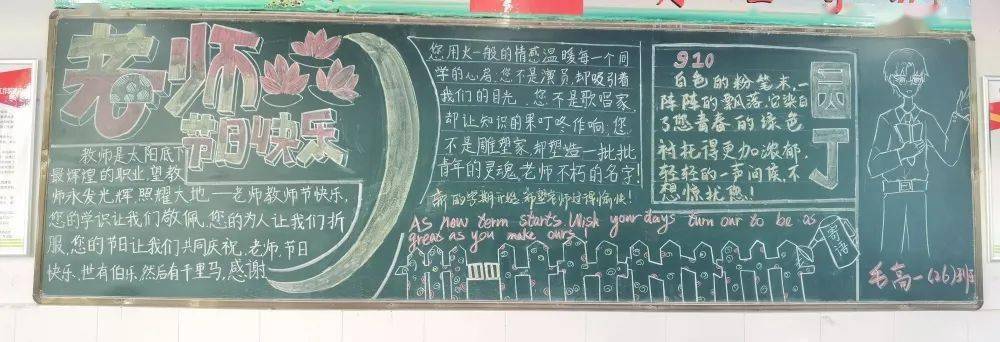 老师
节日快乐
教师是太阳底下
最辉煌的职业,望教
师永发光辉,照耀大地——老师教师节快乐,
您的学识让我们敬佩,您的为人让我们折
服,您的节日让我们共同庆祝,老师,节日
快乐,世有伯乐,然后有千里马,感谢
您用火一般的情感温暖每一个同
学的心房,您不是演员,却吸引着
我们的目光,您不是歌唱家,
却让知识的果叮咚作响,您
不是雕塑家,却塑造一批批
青年的灵魂,老师不朽的名字!
新的学期开始,希望老师过得愉快!
As new term starts. Wish your days turn our to be as
greas as you make ours
910
白色的粉笔末,一
阵阵的飘落,它染白
了您青春的绿色
衬托得更加浓郁,
轻轻的一声问候,不
想惊扰您!
园丁
寄语
毛高一(26)班